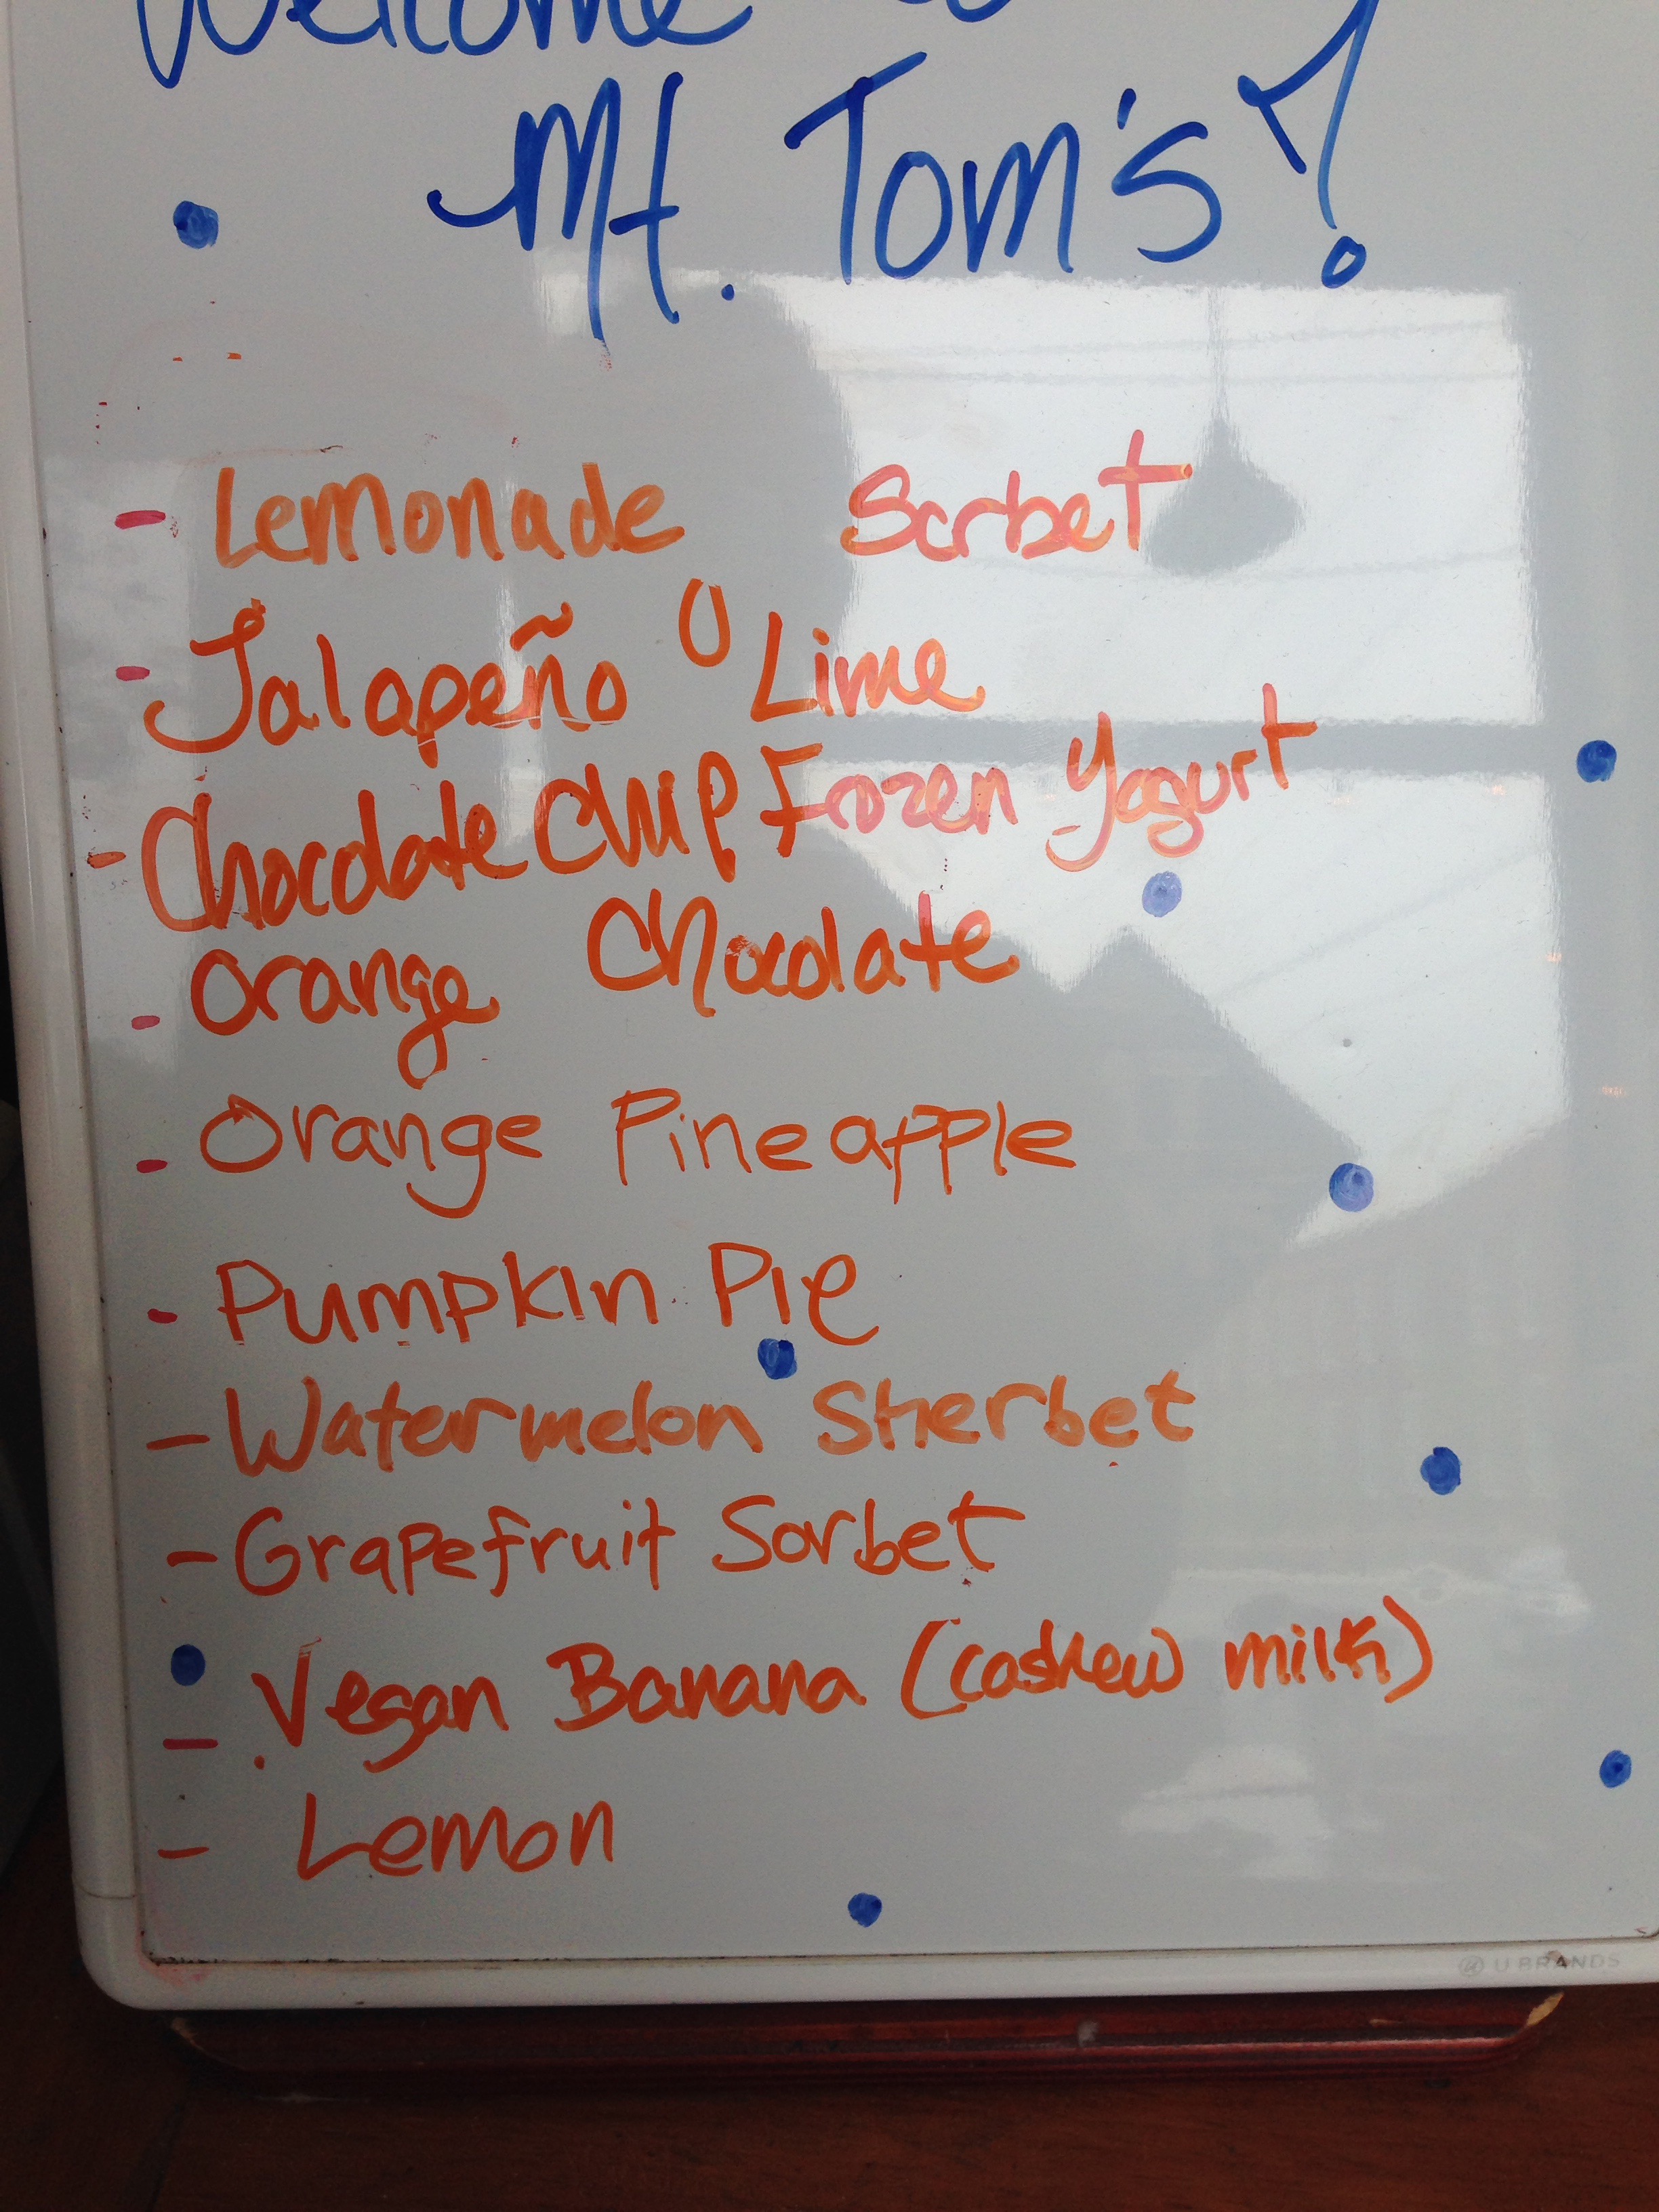 Welcome to
Mt. Tom's!
- Lemonade Sorbet
- Jalapeño Lime
- Chocolate Chip Frozen Yogurt
- Orange Chocolate
- Orange Pineapple
- Pumpkin Pie
- Watermelon Sherbet
- Grapefruit Sorbet
- Vegan Banana (cashew milk)
- Lemon
U BRANDS